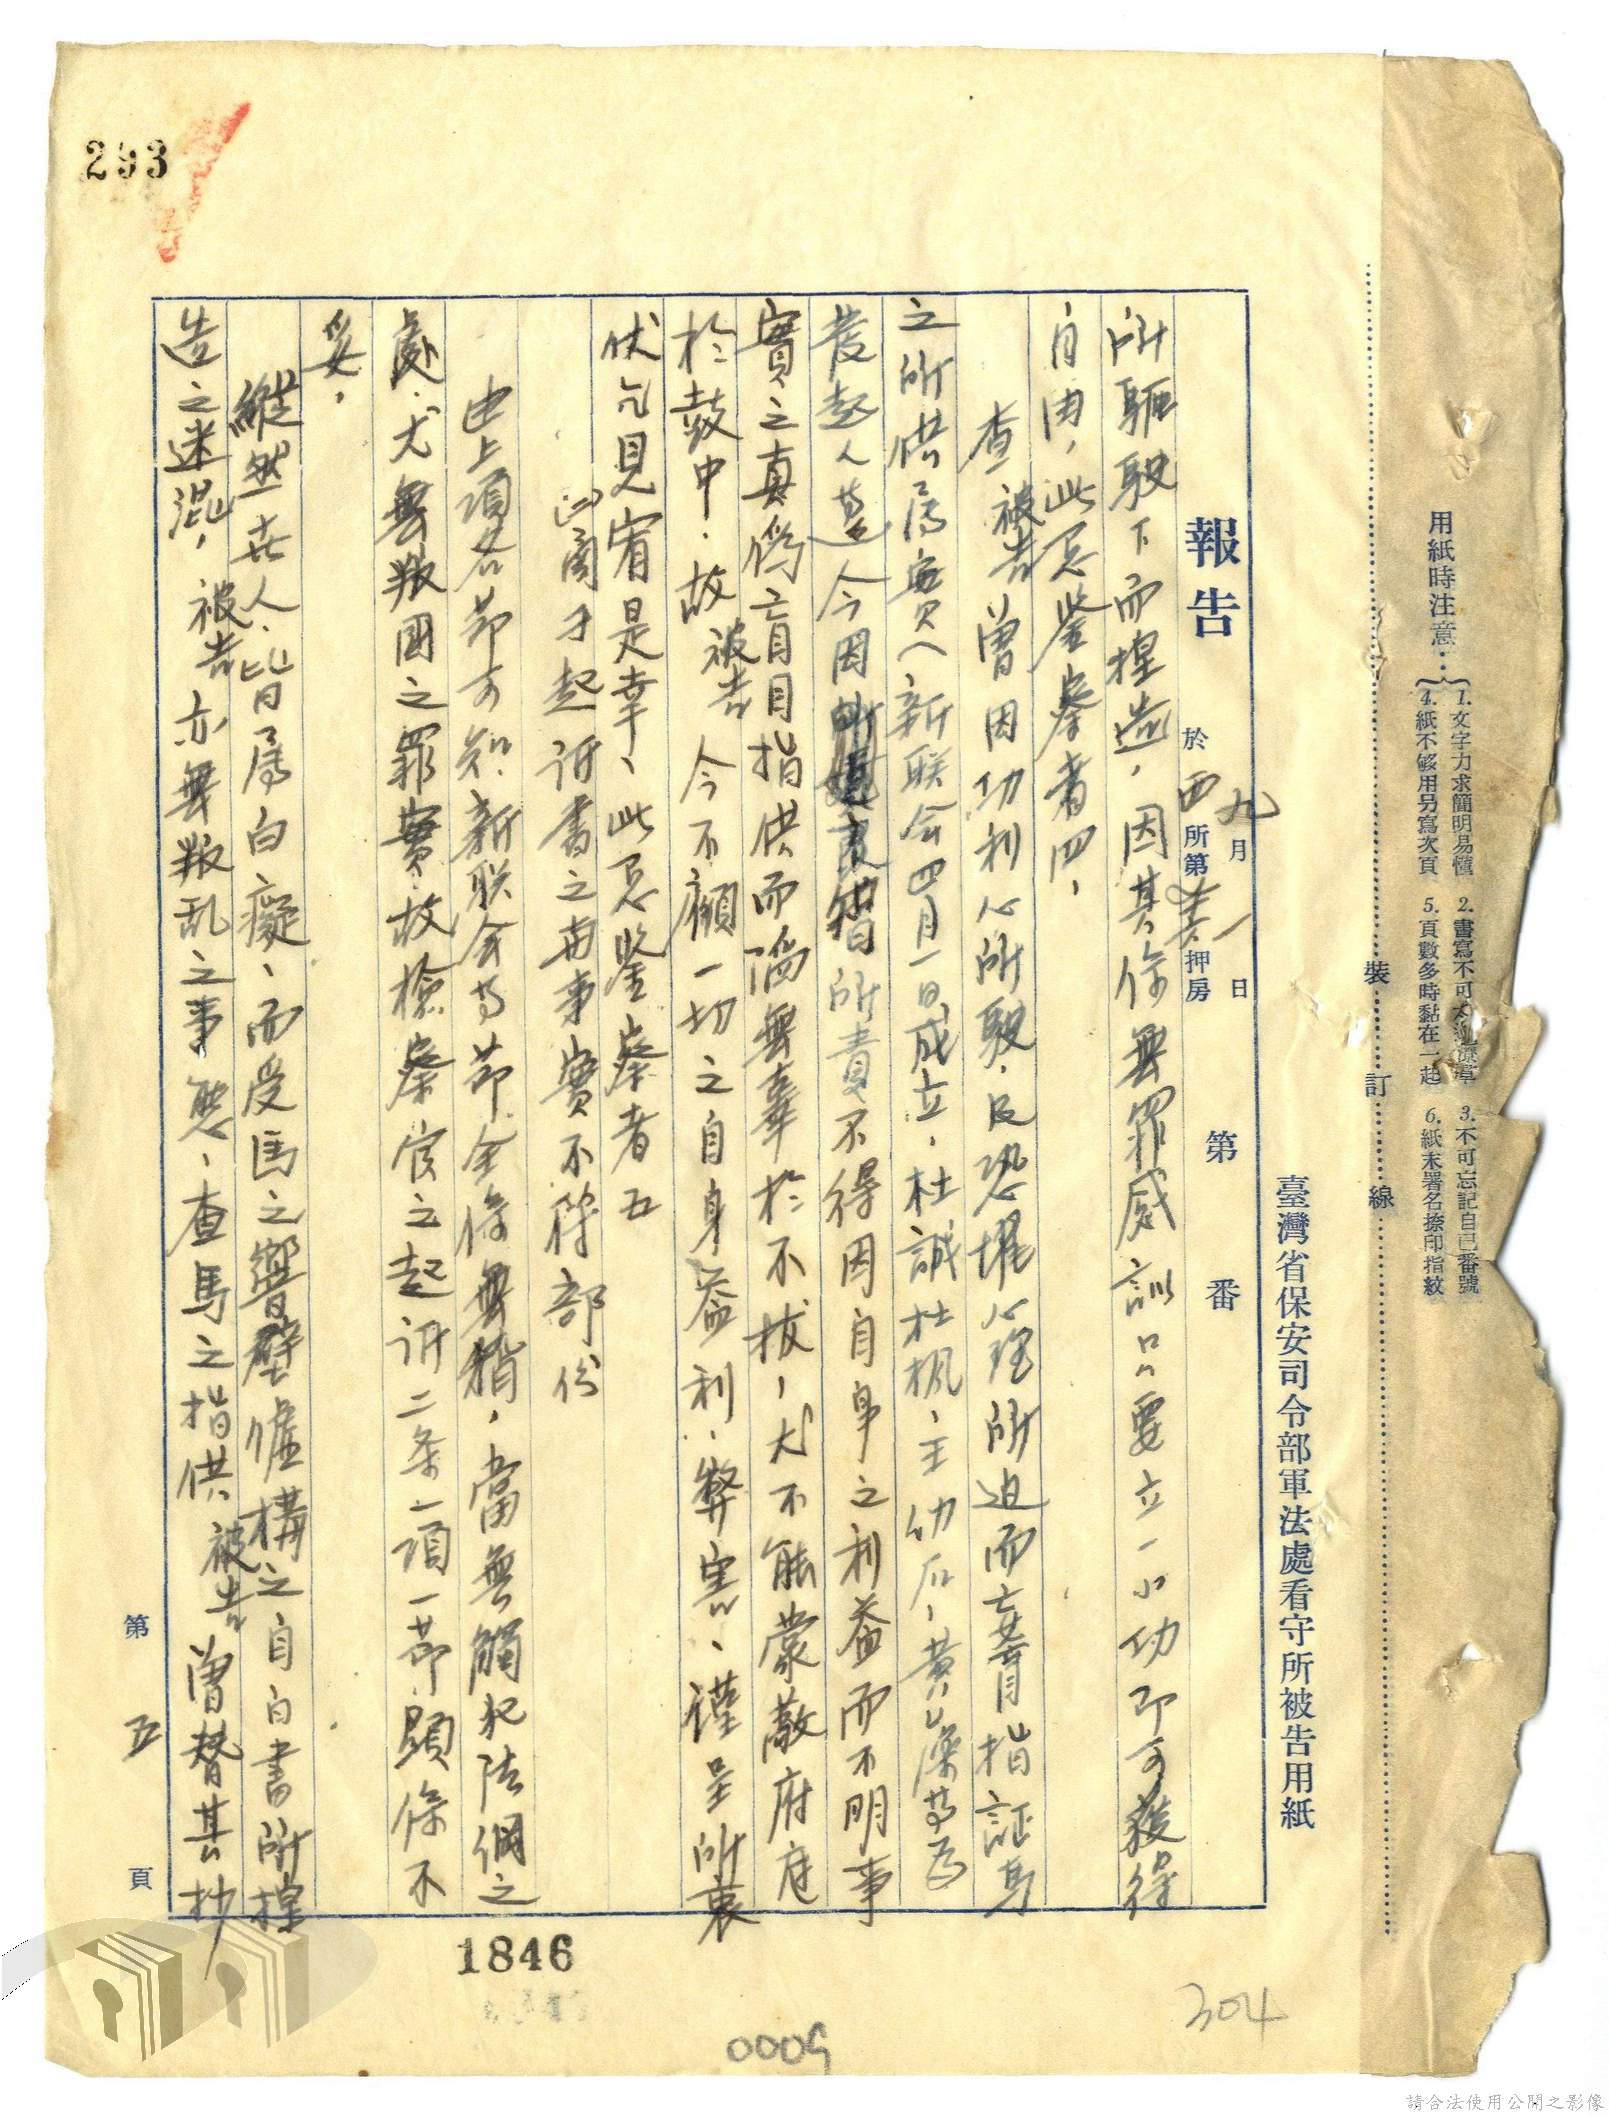 用紙時注意：
1. 文字力求簡明易懂 2. 書寫不可太潦草 3. 不可忘記自己番號
4. 紙不够用另寫次頁 5. 頁數多時黏在一起 6. 紙末署名捺印指紋
裝 訂 線
臺灣省保安司令部軍法處看守所被告用紙
報告 於 九月一日
西所第 押房 第 番
所驅駛下而揑造，因其係無罪感訓只要立一小功即可獲得
自由，此忌鉴察者四，
查被告曾因功利心所駛，及恐懼心理所迫而妄脊指証馬
之所供属實（新联会四月一日成立，杜誠杜楓、王幼石、黃 等為
發起人 今因 所責不得因自身之利益而不明事
實之真偽盲目指供而陷無辜於不拔，尤不能蒙蔽府庭
於鼓中，故被告今不顧一切之自身益利、弊害、谨呈所衷
伏乞見宥是幸、此忌鉴察者五
(四)関于起诉書之与事實不符部份
由上項各節可知，新联会 節全係無稍，當無觸犯法網之
處，尤無叛國之罪實，故檢察官之起诉二条一項一節顕係不
妥，
縱然世人皆属白癡、而受馬之嚮壁虚構之自白書所揑
造之迷混，被告亦無叛乱之事 、查馬之指供被告曾替其抄
第五頁
293
1846
0009
304
請合法使用公開之影像